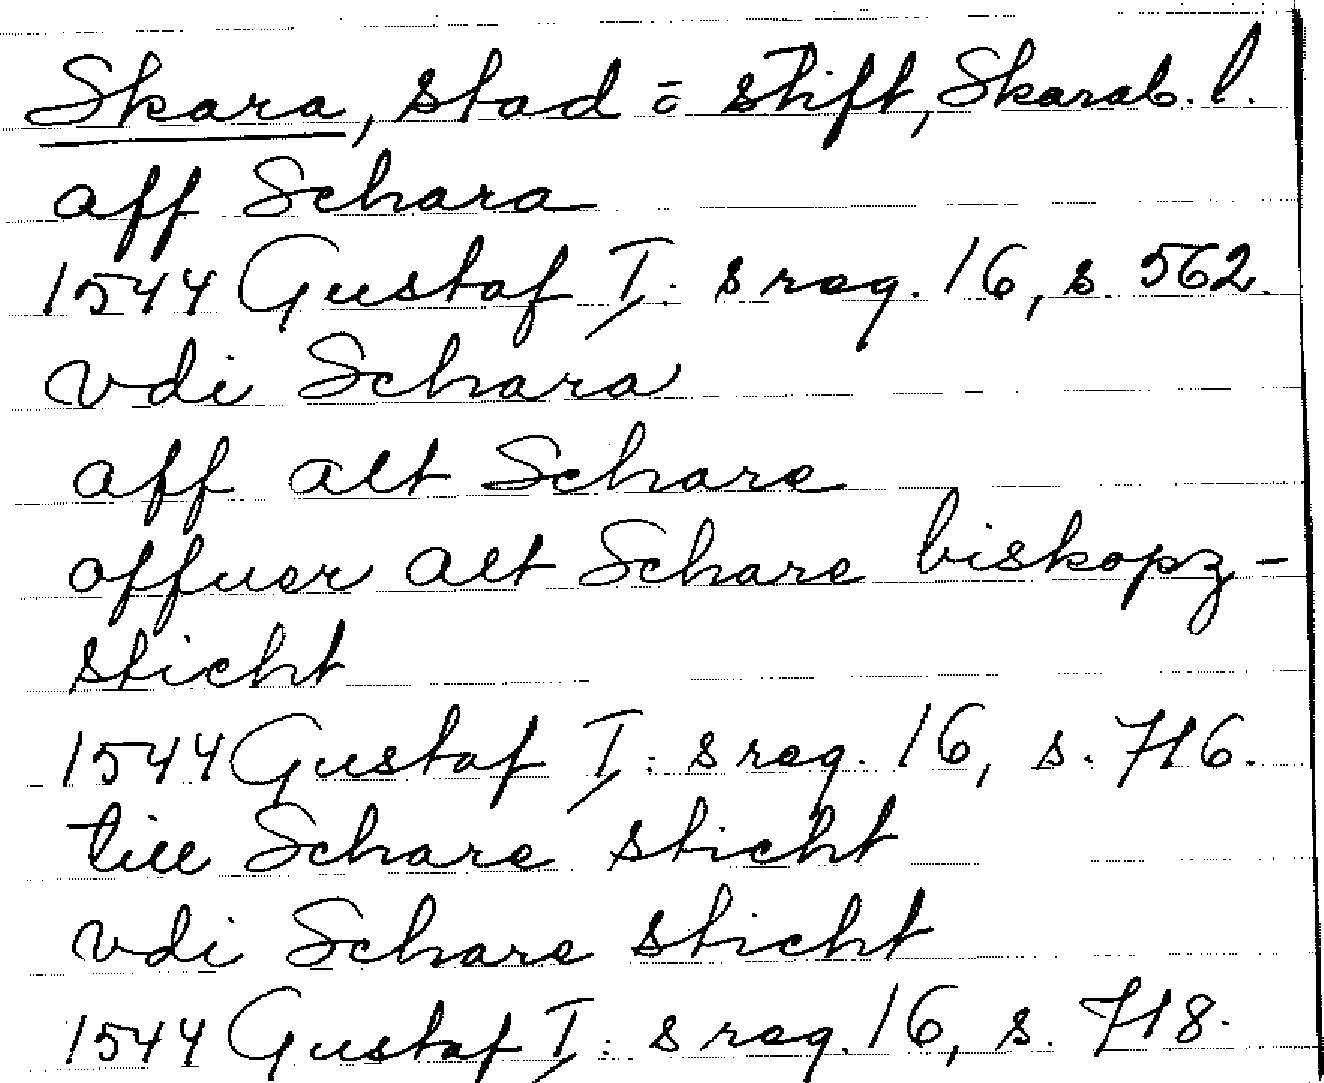 Skara, stad o stift, Skarab. l.
aff Schara
1544 Gustaf I: s reg. 16, s 562.
vdi Schara
aff alt Schare
offuer alt Schare biskopz-
sticht
1544 Gustaf I: s reg. 16, s. 716.
till Schare sticht
vdi Schare sticht
1544 Gustaf I: s reg. 16, s. 718.